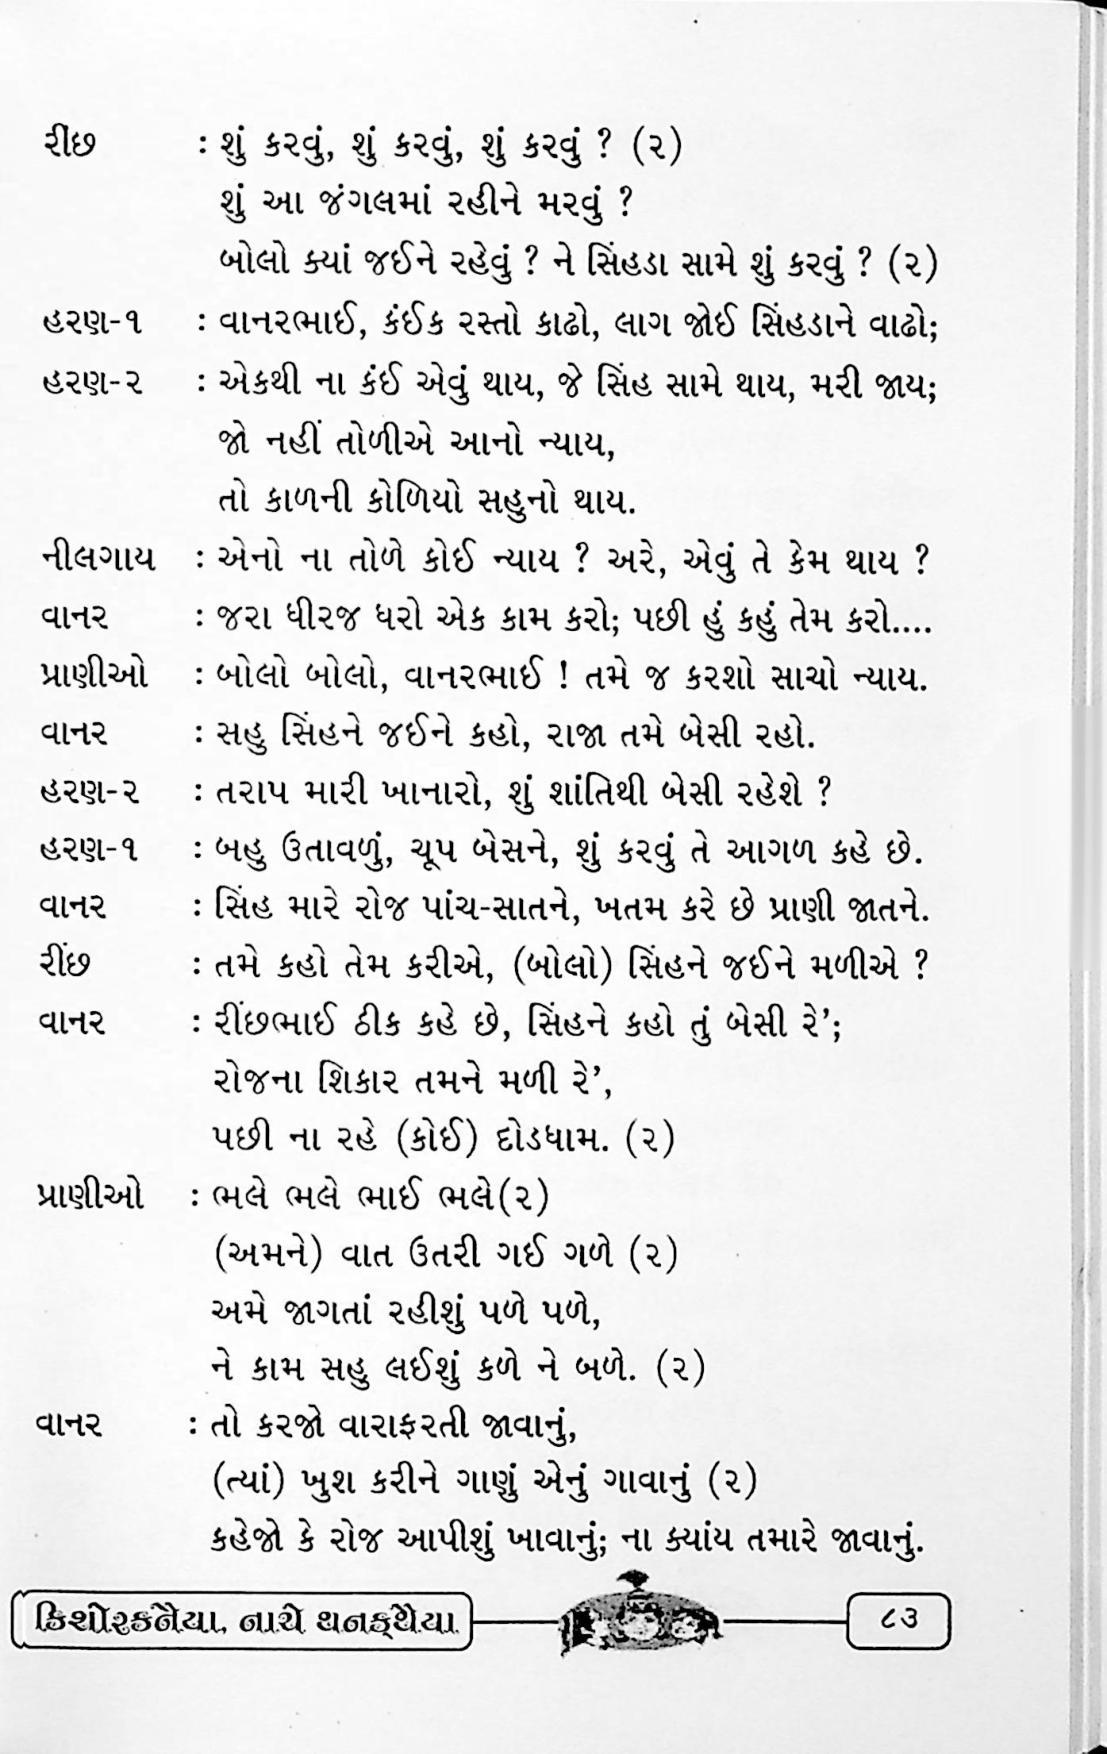 રીંછ : શું કરવું, શું કરવું, શું કરવું ? (૨)
શું આ જંગલમાં રહીને મરવું ?
બોલો ક્યાં જઈને રહેવું ? ને સિંહડા સામે શું કરવું ? (૨)
હરણ-૧ : વાનરભાઈ, કંઈક રસ્તો કાઢો, લાગ જોઈ સિંહડાને વાઢો;
હરણ-૨ : એકથી ના કંઈ એવું થાય, જે સિંહ સામે થાય, મરી જાય;
જો નહીં તોળીએ આનો ન્યાય,
તો કાળની કોળિયો સહુનો થાય.
નીલગાય : એનો ના તોળે કોઈ ન્યાય ? અરે, એવું તે કેમ થાય ?
વાનર : જરા ધીરજ ધરો એક કામ કરો; પછી હું કહું તેમ કરો....
પ્રાણીઓ : બોલો બોલો, વાનરભાઈ ! તમે જ કરશો સાચો ન્યાય.
વાનર : સહુ સિંહને જઈને કહો, રાજા તમે બેસી રહો.
હરણ-૨ : તરાપ મારી ખાનારો, શું શાંતિથી બેસી રહેશે ?
હરણ-૧ : બહુ ઉતાવળું, ચૂપ બેસને, શું કરવું તે આગળ કહે છે.
વાનર : સિંહ મારે રોજ પાંચ-સાતને, ખતમ કરે છે પ્રાણી જાતને.
રીંછ : તમે કહો તેમ કરીએ, (બોલો) સિંહને જઈને મળીએ ?
વાનર : રીંછભાઈ ઠીક કહે છે, સિંહને કહો તું બેસી રે’;
રોજના શિકાર તમને મળી રે’,
પછી ના રહે (કોઈ) દોડધામ. (૨)
પ્રાણીઓ : ભલે ભલે ભાઈ ભલે(૨)
(અમને) વાત ઉતરી ગઈ ગળે (૨)
અમે જાગતાં રહીશું પળે પળે,
ને કામ સહુ લઈશું કળે ને બળે. (૨)
વાનર : તો કરજો વારાફરતી જાવાનું,
(ત્યાં) ખુશ કરીને ગાણું એનું ગાવાનું (૨)
કહેજો કે રોજ આપીશું ખાવાનું; ના ક્યાંય તમારે જાવાનું.
કિશોરકનૈયા, નાચે થનક્થૈયા ૮૩